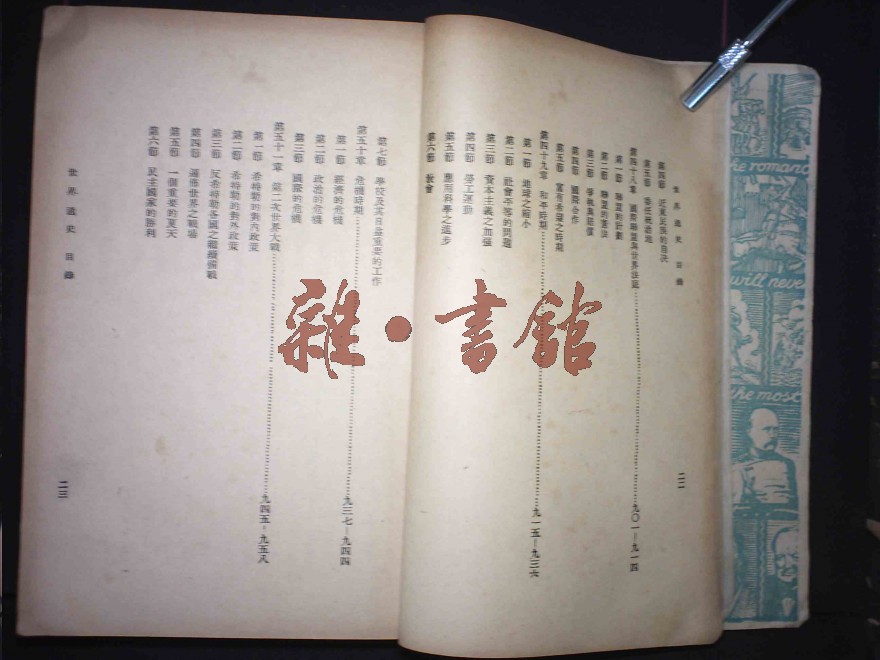 世界通史 目錄
第四節 近東民族的自決
第五節 委任統治地
第四十八章 國際聯盟與世界法庭……九〇一—九一四
第一節 聯盟的計劃
第二節 聯盟的憲法
第三節 爭執與賠償
第四節 國際合作
第五節 富有希望之時期
第四十九章 和平時期……九一五—九三六
第一節 地球之縮小
第二節 社會平等的問題
第三節 資本主義之加強
第四節 勞工運動
第五節 應用科學之進步
第六節 教會
二二
第七節 學校及其日益重要的工作
第五十章 危機時期……九三七—九四四
第一節 經濟的危機
第二節 政治的危機
第三節 國際的危機
第五十一章 第二次世界大戰……九四五—九五八
第一節 希特勒的對內政策
第二節 希特勒的對外政策
第三節 反希特勒各國之龍鍾備戰
第四節 遍佈世界之戰爭
第五節 一個重要的夏天
第六節 民主國家的勝利
世界通史 目錄
二三
雜·書館
the romanc
will never
the most